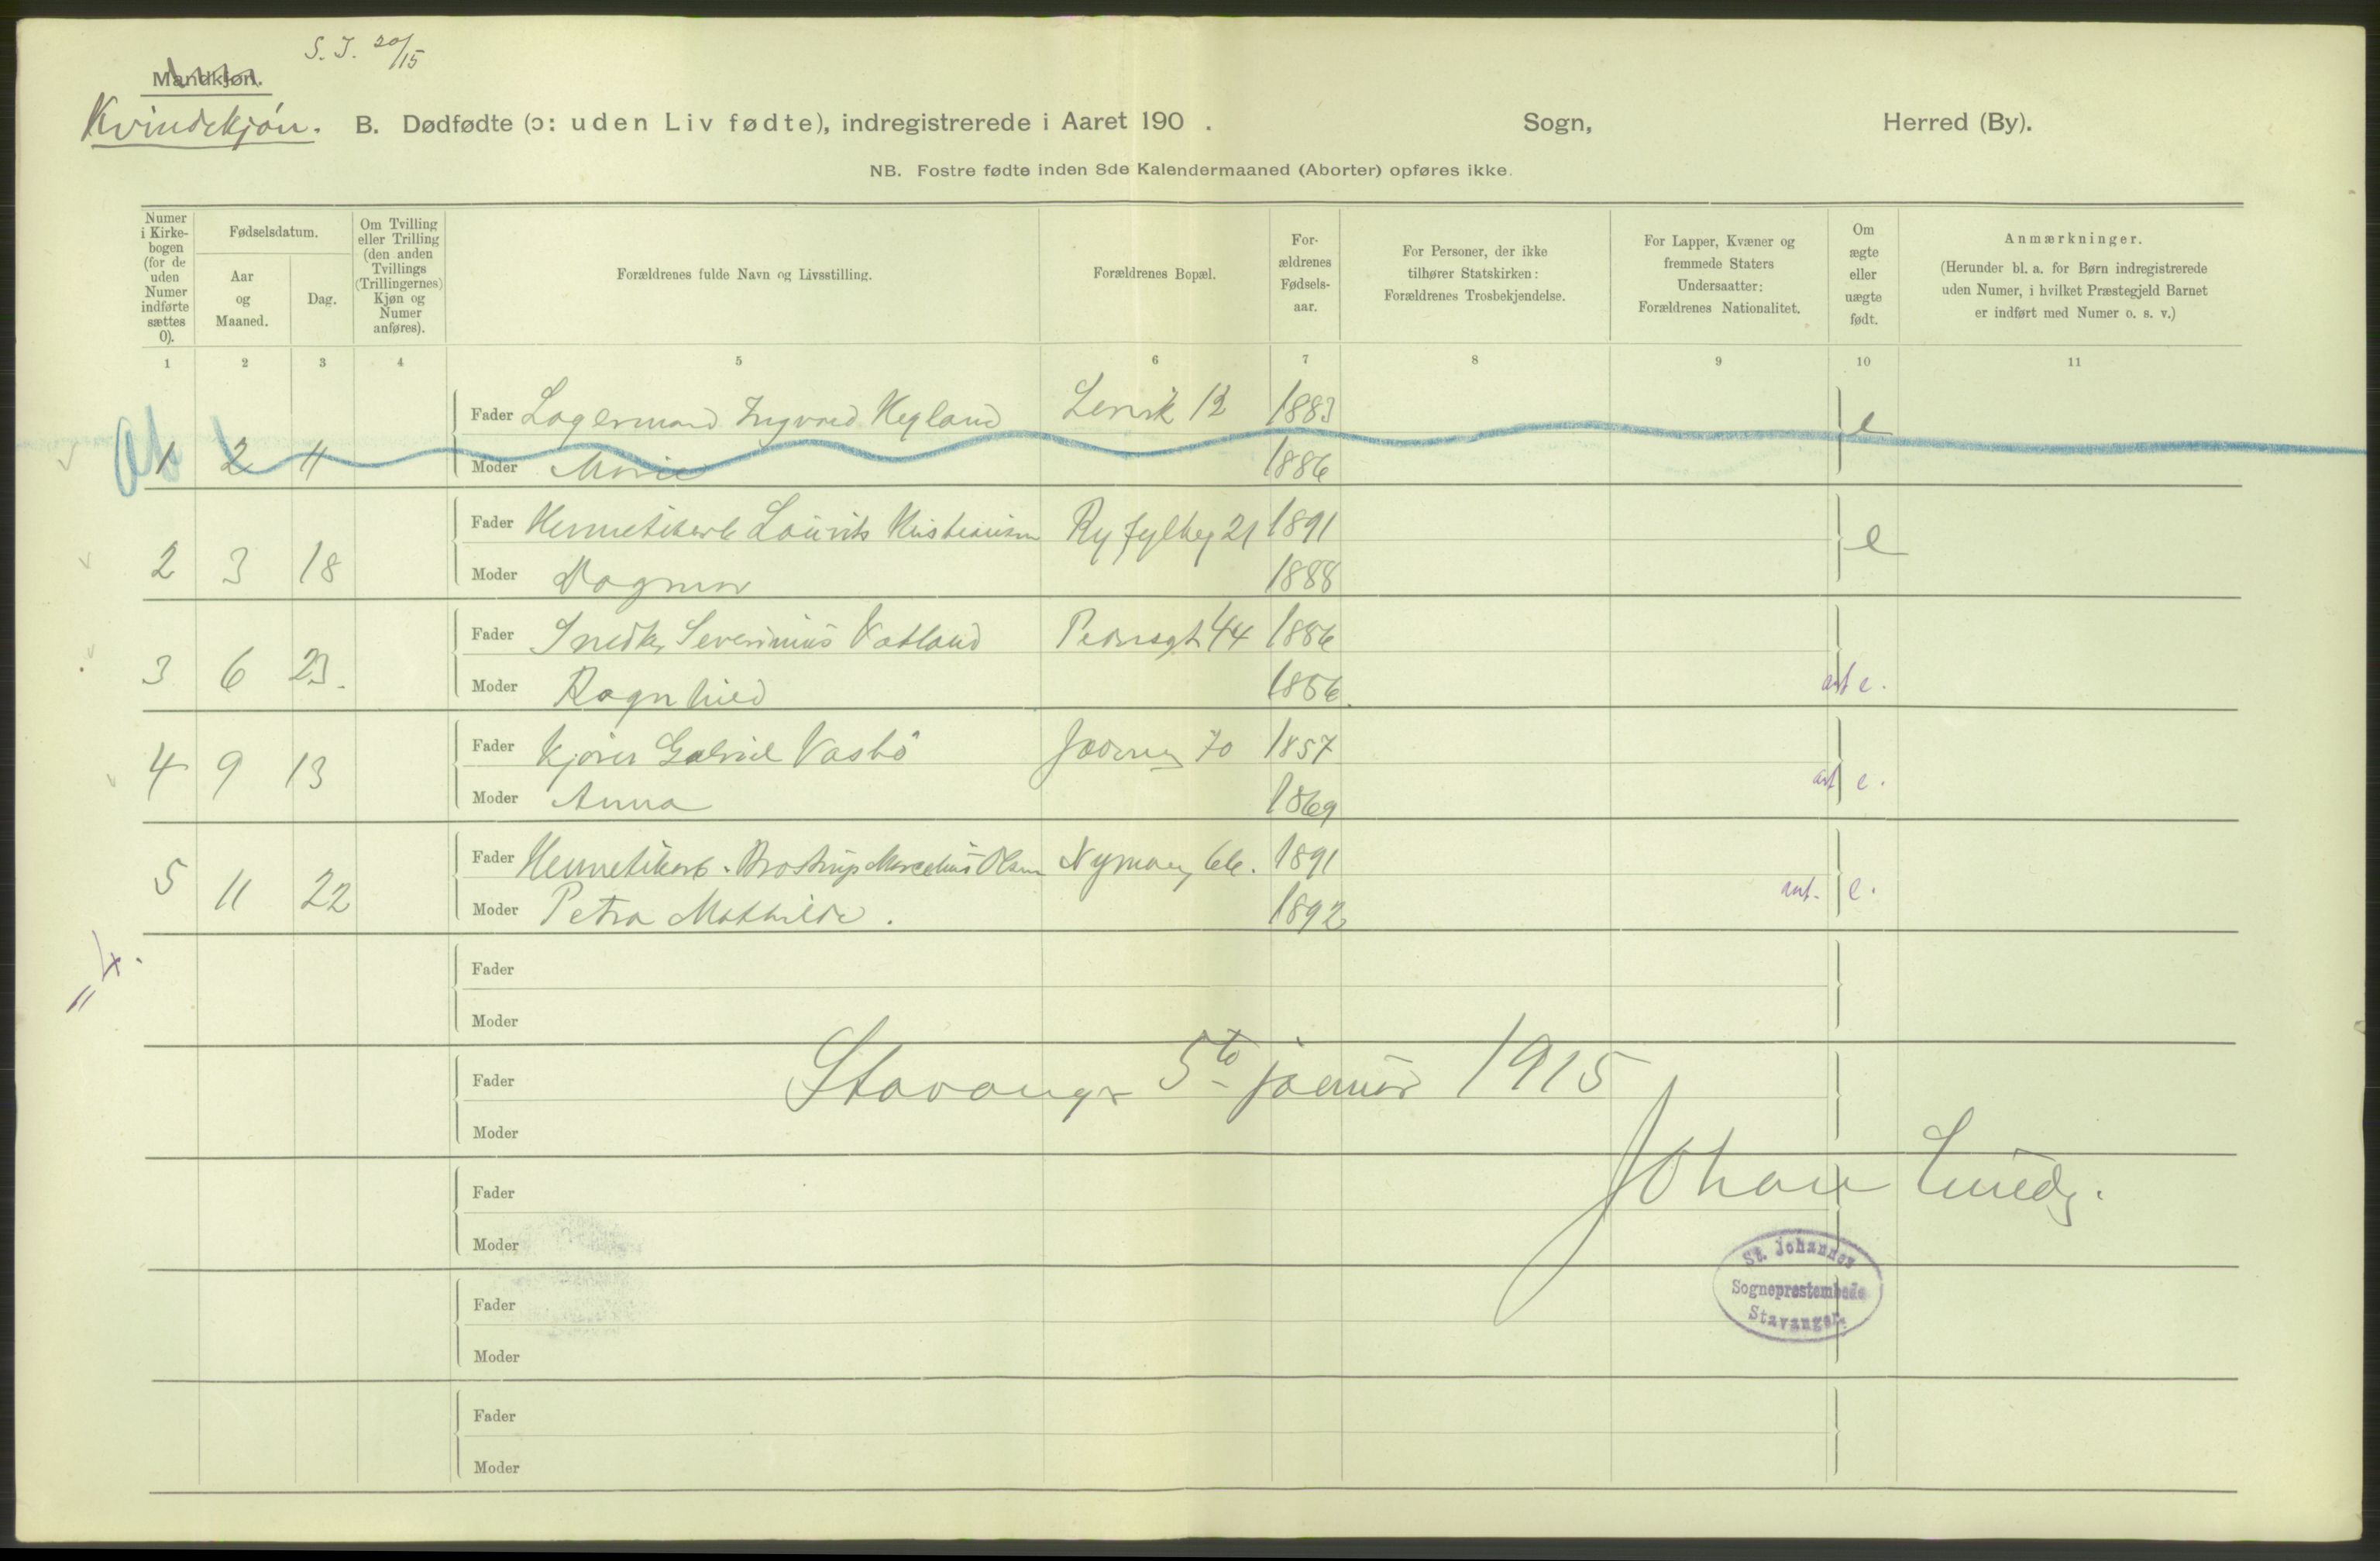 S. J. 20/15
Mandkjøn.
Kvindekjøn. B. Dødfødte (ɔ: uden Liv fødte), indregistrerede i Aaret 190 . Sogn, Herred (By).
NB. Fostre fødte inden 8de Kalendermaaned (Aborter) opføres ikke.
Numer i Kirke-bogen (for de uden Numer indførte sættes 0).
Fødselsdatum.
Aar og Maaned.
Dag.
Om Tvilling eller Trilling (den anden Tvillings (Trillingernes) Kjøn og Numer anføres).
Forældrenes fulde Navn og Livsstilling.
Forældrenes Bopæl.
For-ældrenes Fødsels-aar.
For Personer, der ikke tilhører Statskirken: Forældrenes Trosbekjendelse.
For Lapper, Kvæner og fremmede Staters Undersaatter: Forældrenes Nationalitet.
Om ægte eller uægte født.
Anmærkninger.
(Herunder bl. a. for Børn indregistrerede uden Numer, i hvilket Præstegjeld Barnet er indført med Numer o. s. v.)
1 2 3 4 5 6 7 8 9 10 11
Fader Lagermand Ingvald Hegland 12 1883 e
1 2 11 Moder Marie 1886
Fader Hermetikarb Laurits Kristiansen Ryfylkeg 21 1891 e
2 3 18 Moder Dagmar 1888
Fader Snedker Severinius Vatland Pedersgt 44 1886
3 6 23. Moder Ragnhild 1886. ant e.
Fader Kjører Gabriel Vasbø Jæderveg 70 1857
4 9 13 Moder Anna 1869 ant e.
Fader Hermetikarb. Marselius Olsen Nymanveg 66. 1891
5 11 22 Moder Petra Mathilde. 1892 ant. e.
Fader
Moder
Stavanger 5te januar 1915
Fader
Moder
Johan Lunde.
Fader
Moder
St. Johannes
Sogneprestembede
Stavanger.
Fader
Moder
Fader
Moder